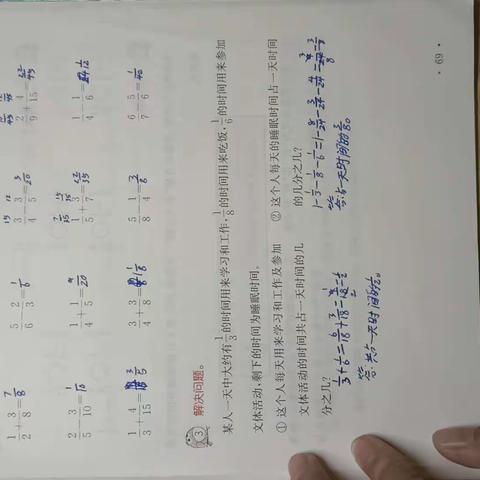 1/2+3/8=7/8 5/6-2/3=1/6 3/4-3/5=3/20 2/9+4/15=22/45
2/5-3/10=1/10 1/4+1/5=9/20 1/5+3/7=22/35 1/4-1/6=1/12
1/3+4/15= 3/4+3/8= 5/8-1/4=3/8 6/7-5/6=
3 解决问题。
某人一天中大约有1/3的时间用来学习和工作,1/8的时间用来吃饭,1/6的时间用来参加
文体活动,剩下的时间为睡眠时间。
① 这个人每天用来学习和工作及参加
文体活动的时间共占一天时间的几
分之几?
1/3+1/6=6/18+3/18=9/18=1/2
答:共占一天时间的1/2。
② 这个人每天的睡眠时间占一天时间
的几分之几?
1-1/3-1/8-1/6=1-8/24-3/24-4/24=
答:占一天时间的3/8。
· 69 ·